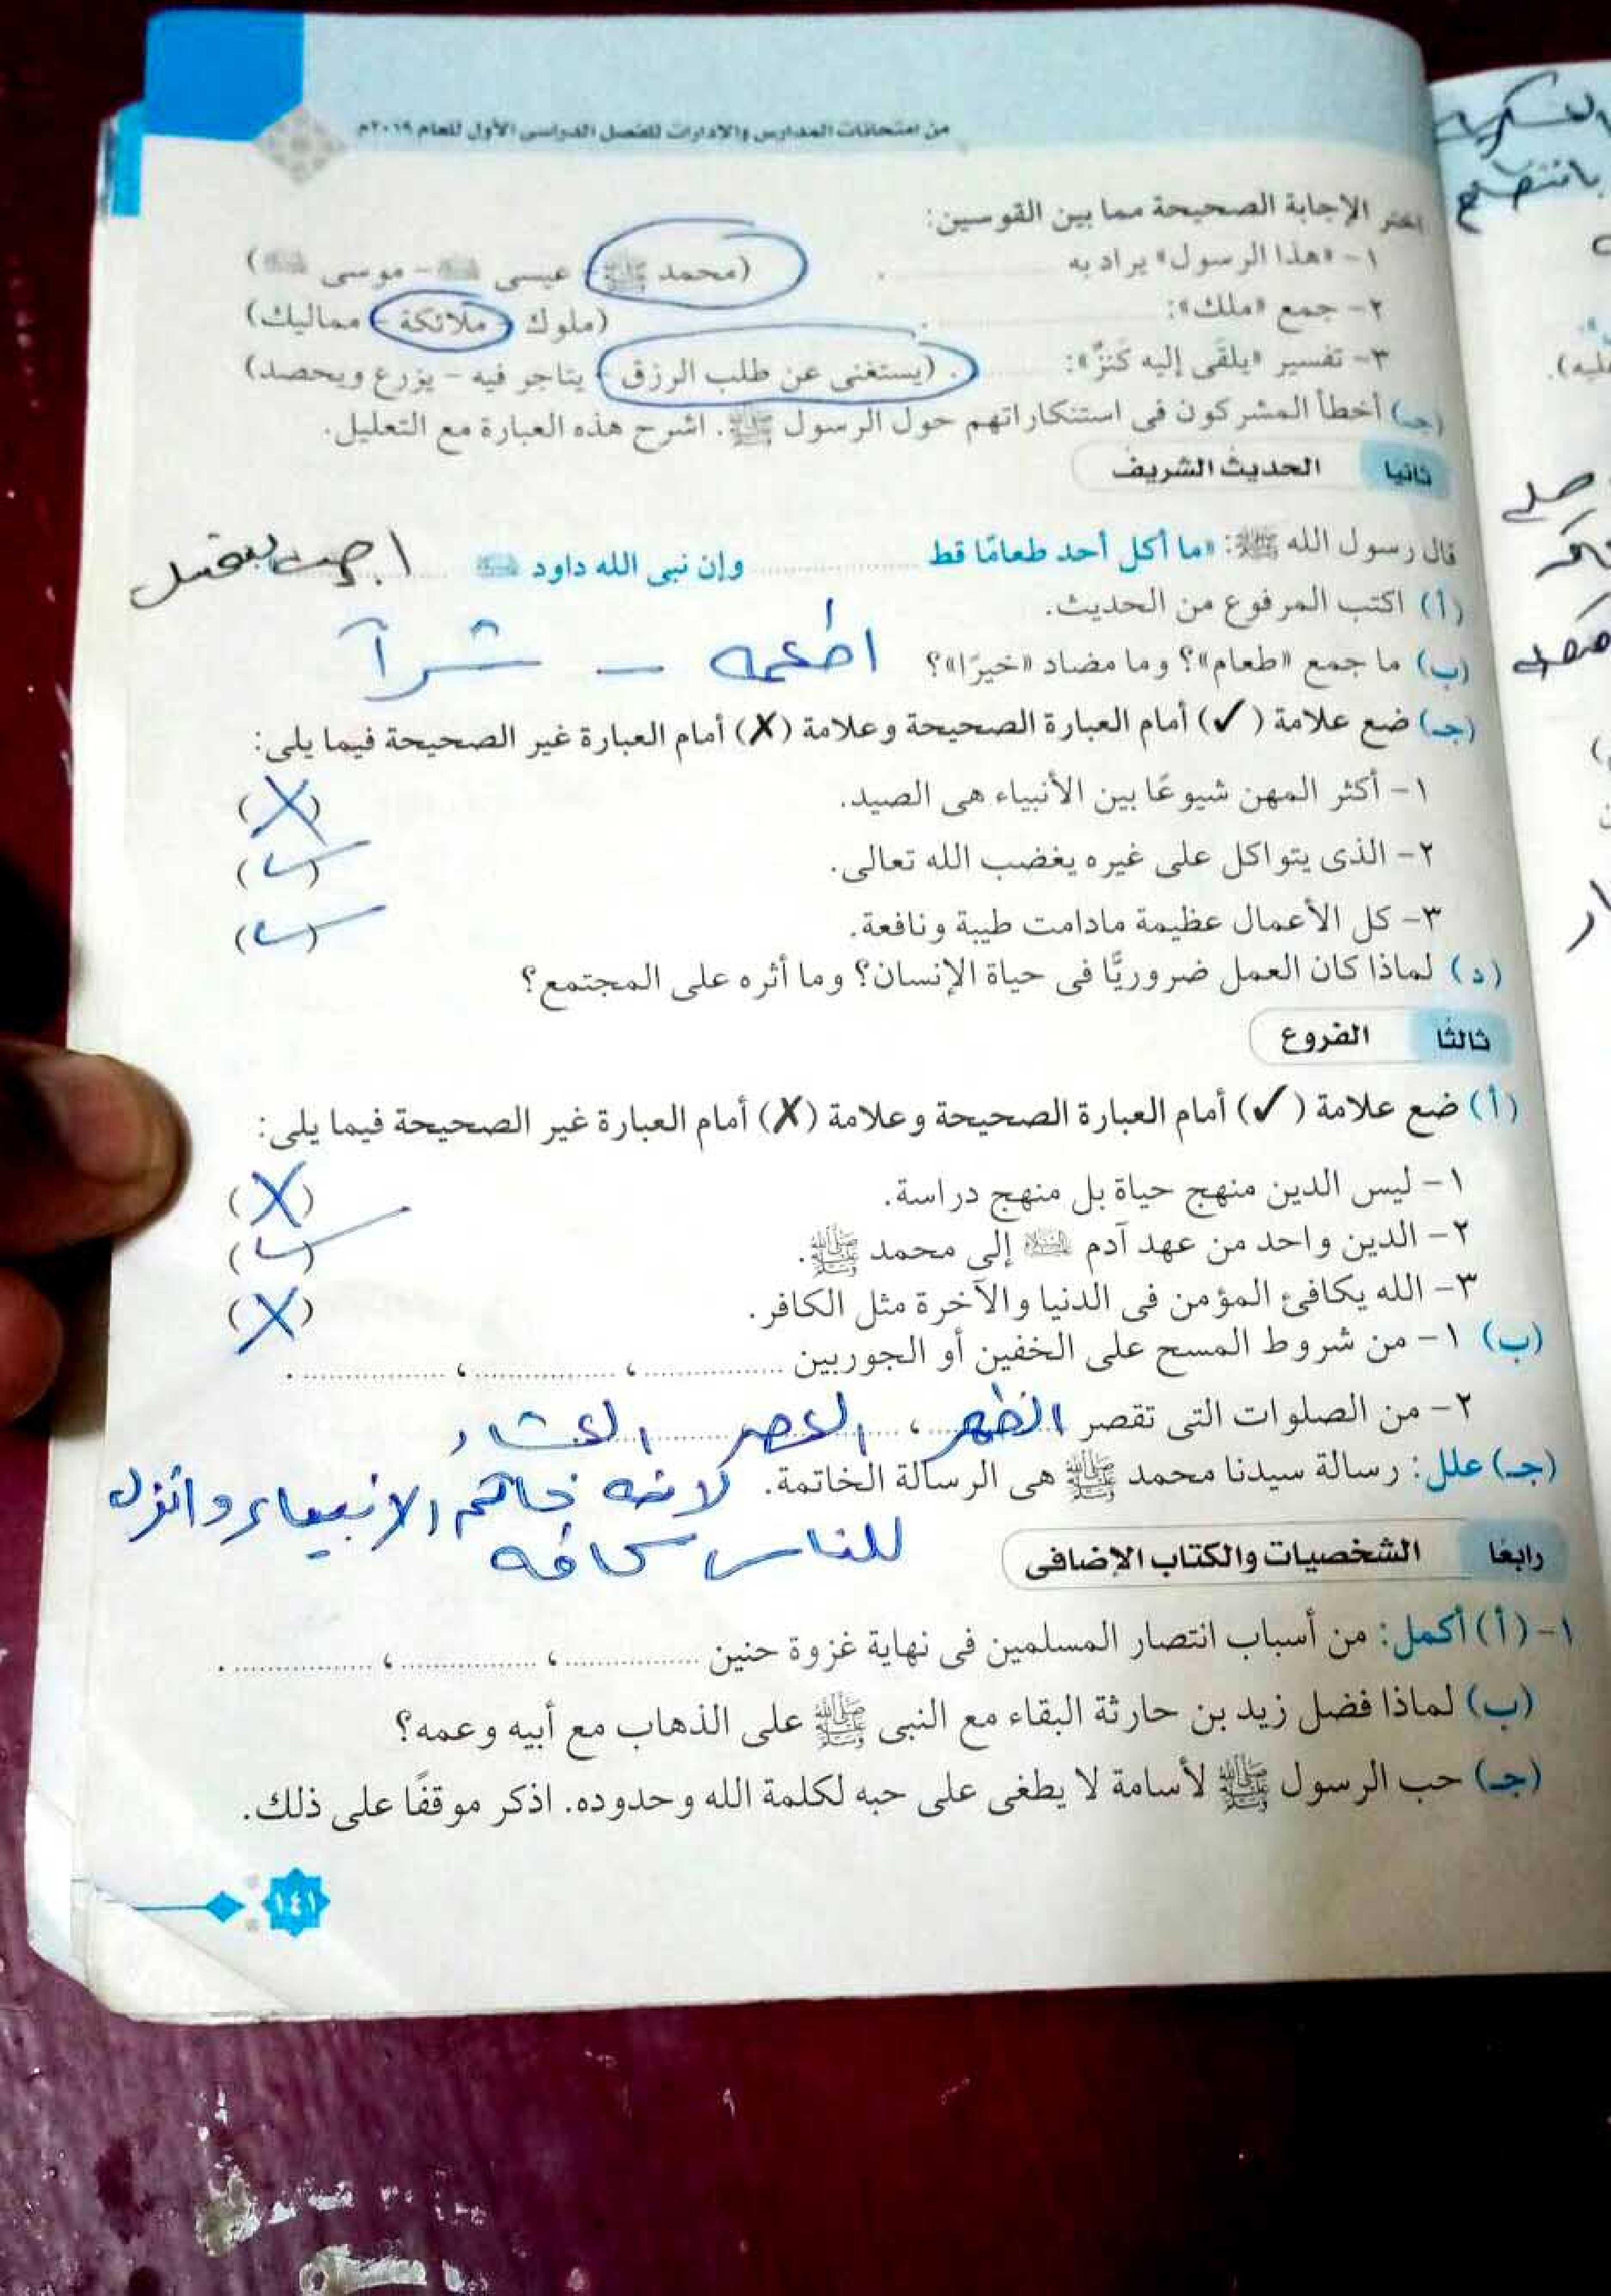 من امتحانات المدارس والإدارات للفصل الدراسى الأول للعام ٢٠١٩م
اختر الإجابة الصحيحة مما بين القوسين:
١- «هذا الرسول» يراد به ............ . (محمد ﷺ - عيسى ﷺ - موسى ﷺ)
٢- جمع «ملك»: ............ . (ملوك - ملائكة - مماليك)
٣- تفسير «يلقى إليه كَنزٌ»: . (يستغنى عن طلب الرزق - يتاجر فيه - يزرع ويحصد)
(جـ) أخطأ المشركون فى استنكاراتهم حول الرسول ﷺ. اشرح هذه العبارة مع التعليل.
ثانيا الحديث الشريف
قال رسول الله ﷺ: «ما أكل أحد طعامًا قط ............ وإن نبى الله داود ............
(أ) اكتب المرفوع من الحديث.
(ب) ما جمع «طعام»؟ وما مضاد «خيرًا»؟ اطعمه - شرآ
(جـ) ضع علامة (✓) أمام العبارة الصحيحة وعلامة (✗) أمام العبارة غير الصحيحة فيما يلى:
١- أكثر المهن شيوعًا بين الأنبياء هى الصيد. (✗)
٢- الذى يتواكل على غيره يغضب الله تعالى. (✓)
٣- كل الأعمال عظيمة مادامت طيبة ونافعة. (✓)
(د) لماذا كان العمل ضروريًّا فى حياة الإنسان؟ وما أثره على المجتمع؟
ثالثًا الفروع
(أ) ضع علامة (✓) أمام العبارة الصحيحة وعلامة (✗) أمام العبارة غير الصحيحة فيما يلى:
١- ليس الدين منهج حياة بل منهج دراسة. (✗)
٢- الدين واحد من عهد آدم عليه السلام إلى محمد ﷺ. (✓)
٣- الله يكافئ المؤمن فى الدنيا والآخرة مثل الكافر. (✗)
(ب) ١- من شروط المسح على الخفين أو الجوربين ............، ............، ............ .
٢- من الصلوات التى تقصر الظهر، العصر العشاء
(جـ) علل: رسالة سيدنا محمد ﷺ هى الرسالة الخاتمة. لانه خاتم الانبياء وانزل
للناس كافه
رابعًا الشخصيات والكتاب الإضافى
١- (أ) أكمل: من أسباب انتصار المسلمين فى نهاية غزوة حنين ............، ............، ............ .
(ب) لماذا فضل زيد بن حارثة البقاء مع النبى ﷺ على الذهاب مع أبيه وعمه؟
(جـ) حب الرسول ﷺ لأسامة لا يطغى على حبه لكلمة الله وحدوده. اذكر موقفًا على ذلك.
١٤١